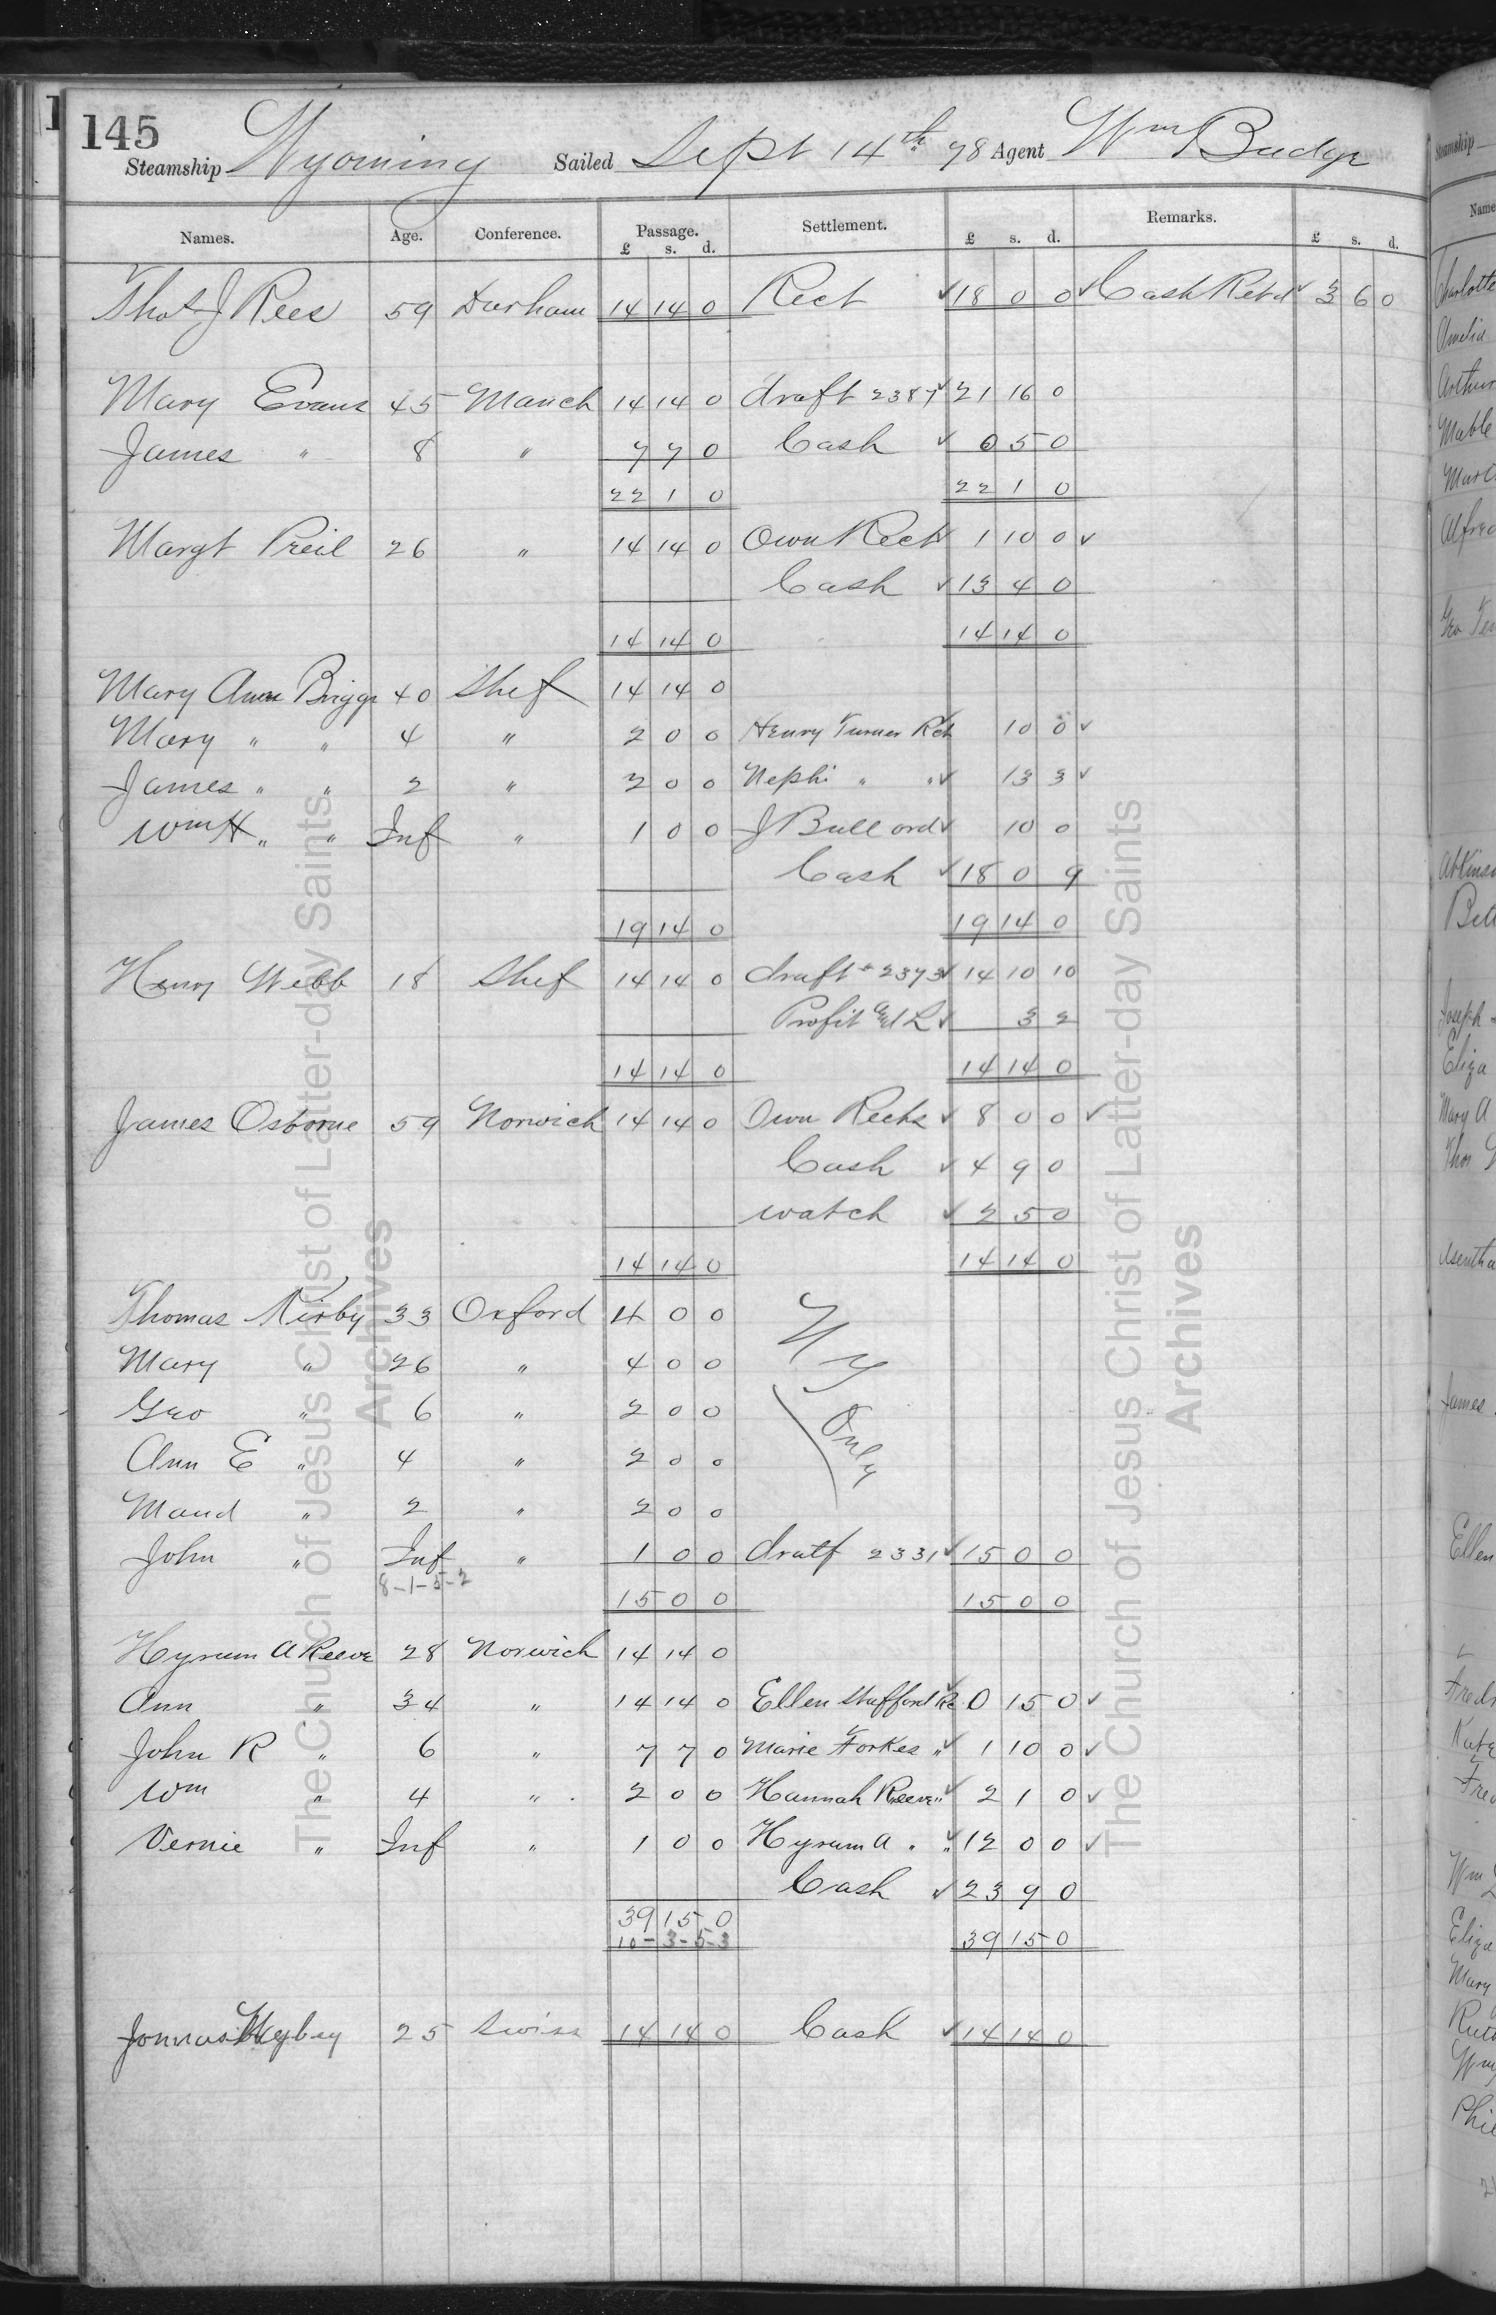 145
Steamship Wyoming Sailed Sept 14th 78 Agent Wm Budge
Names. Age. Conference. Passage. Settlement. £ s. d. Remarks. £ s. d.
£ s. d.
Thos J Rees 59 Durham 14 14 0 Rect 18 0 0 Cash Retd 3 6 0
Mary Evans 45 Manch 14 14 0 draft 2387 21 16 0
James " 8 " 7 7 0 Cash 0 5 0
22 1 0 22 1 0
Margt Preil 26 " 14 14 0 Own Rect 1 10 0
Cash 13 4 0
14 14 0 14 14 0
Mary Ann Briggs 40 Shef 14 14 0
Mary " " 4 " 2 0 0 Henry Turner Rct 10 0
James " " 2 " 2 0 0 Nephi " " 13 3
Wm H " " Inf " 1 0 0 J Bullord 10 0
Cash 18 0 9
19 14 0 19 14 0
Henry Webb 18 Shef 14 14 0 draft # 2373 14 10 10
Profit and L 3 2
14 14 0 14 14 0
James Osborne 59 Norwich 14 14 0 Own Rects 8 0 0
Cash 4 9 0
watch 2 5 0
14 14 0 14 14 0
Thomas Kirby 33 Oxford 4 0 0 N Y
Mary " 26 " 4 0 0
Geo " 6 " 2 0 0 Only
Ann E " 4 " 2 0 0
Maud " 2 " 2 0 0
John " Inf " 1 0 0 dratf 2331 15 0 0
8-1-5-2 15 0 0 15 0 0
Hyrum A Reeve 28 Norwich 14 14 0
Ann " 34 " 14 14 0 Ellen Stafford Rc 0 15 0
John R " 6 " 7 7 0 Marie Forkes " 1 10 0
Wm " 4 " 2 0 0 Hannah Reeve " 2 1 0
Vernie " Inf " 1 0 0 Hyrum A " " 12 0 0
Cash 23 9 0
39 15 0
10-3-5-3 39 15 0
25 Swiss 14 14 0 Cash 14 14 0
The Church of Jesus Christ of Latter-day Saints
Archives
The Church of Jesus Christ of Latter-day Saints
Archives
Steamship
Name
Charlotte
Amelia
Arthur
Mable
Alfred
Joseph
Eliza
Mary A
Thos
James
Ellen
Wm
Eliza
Mary